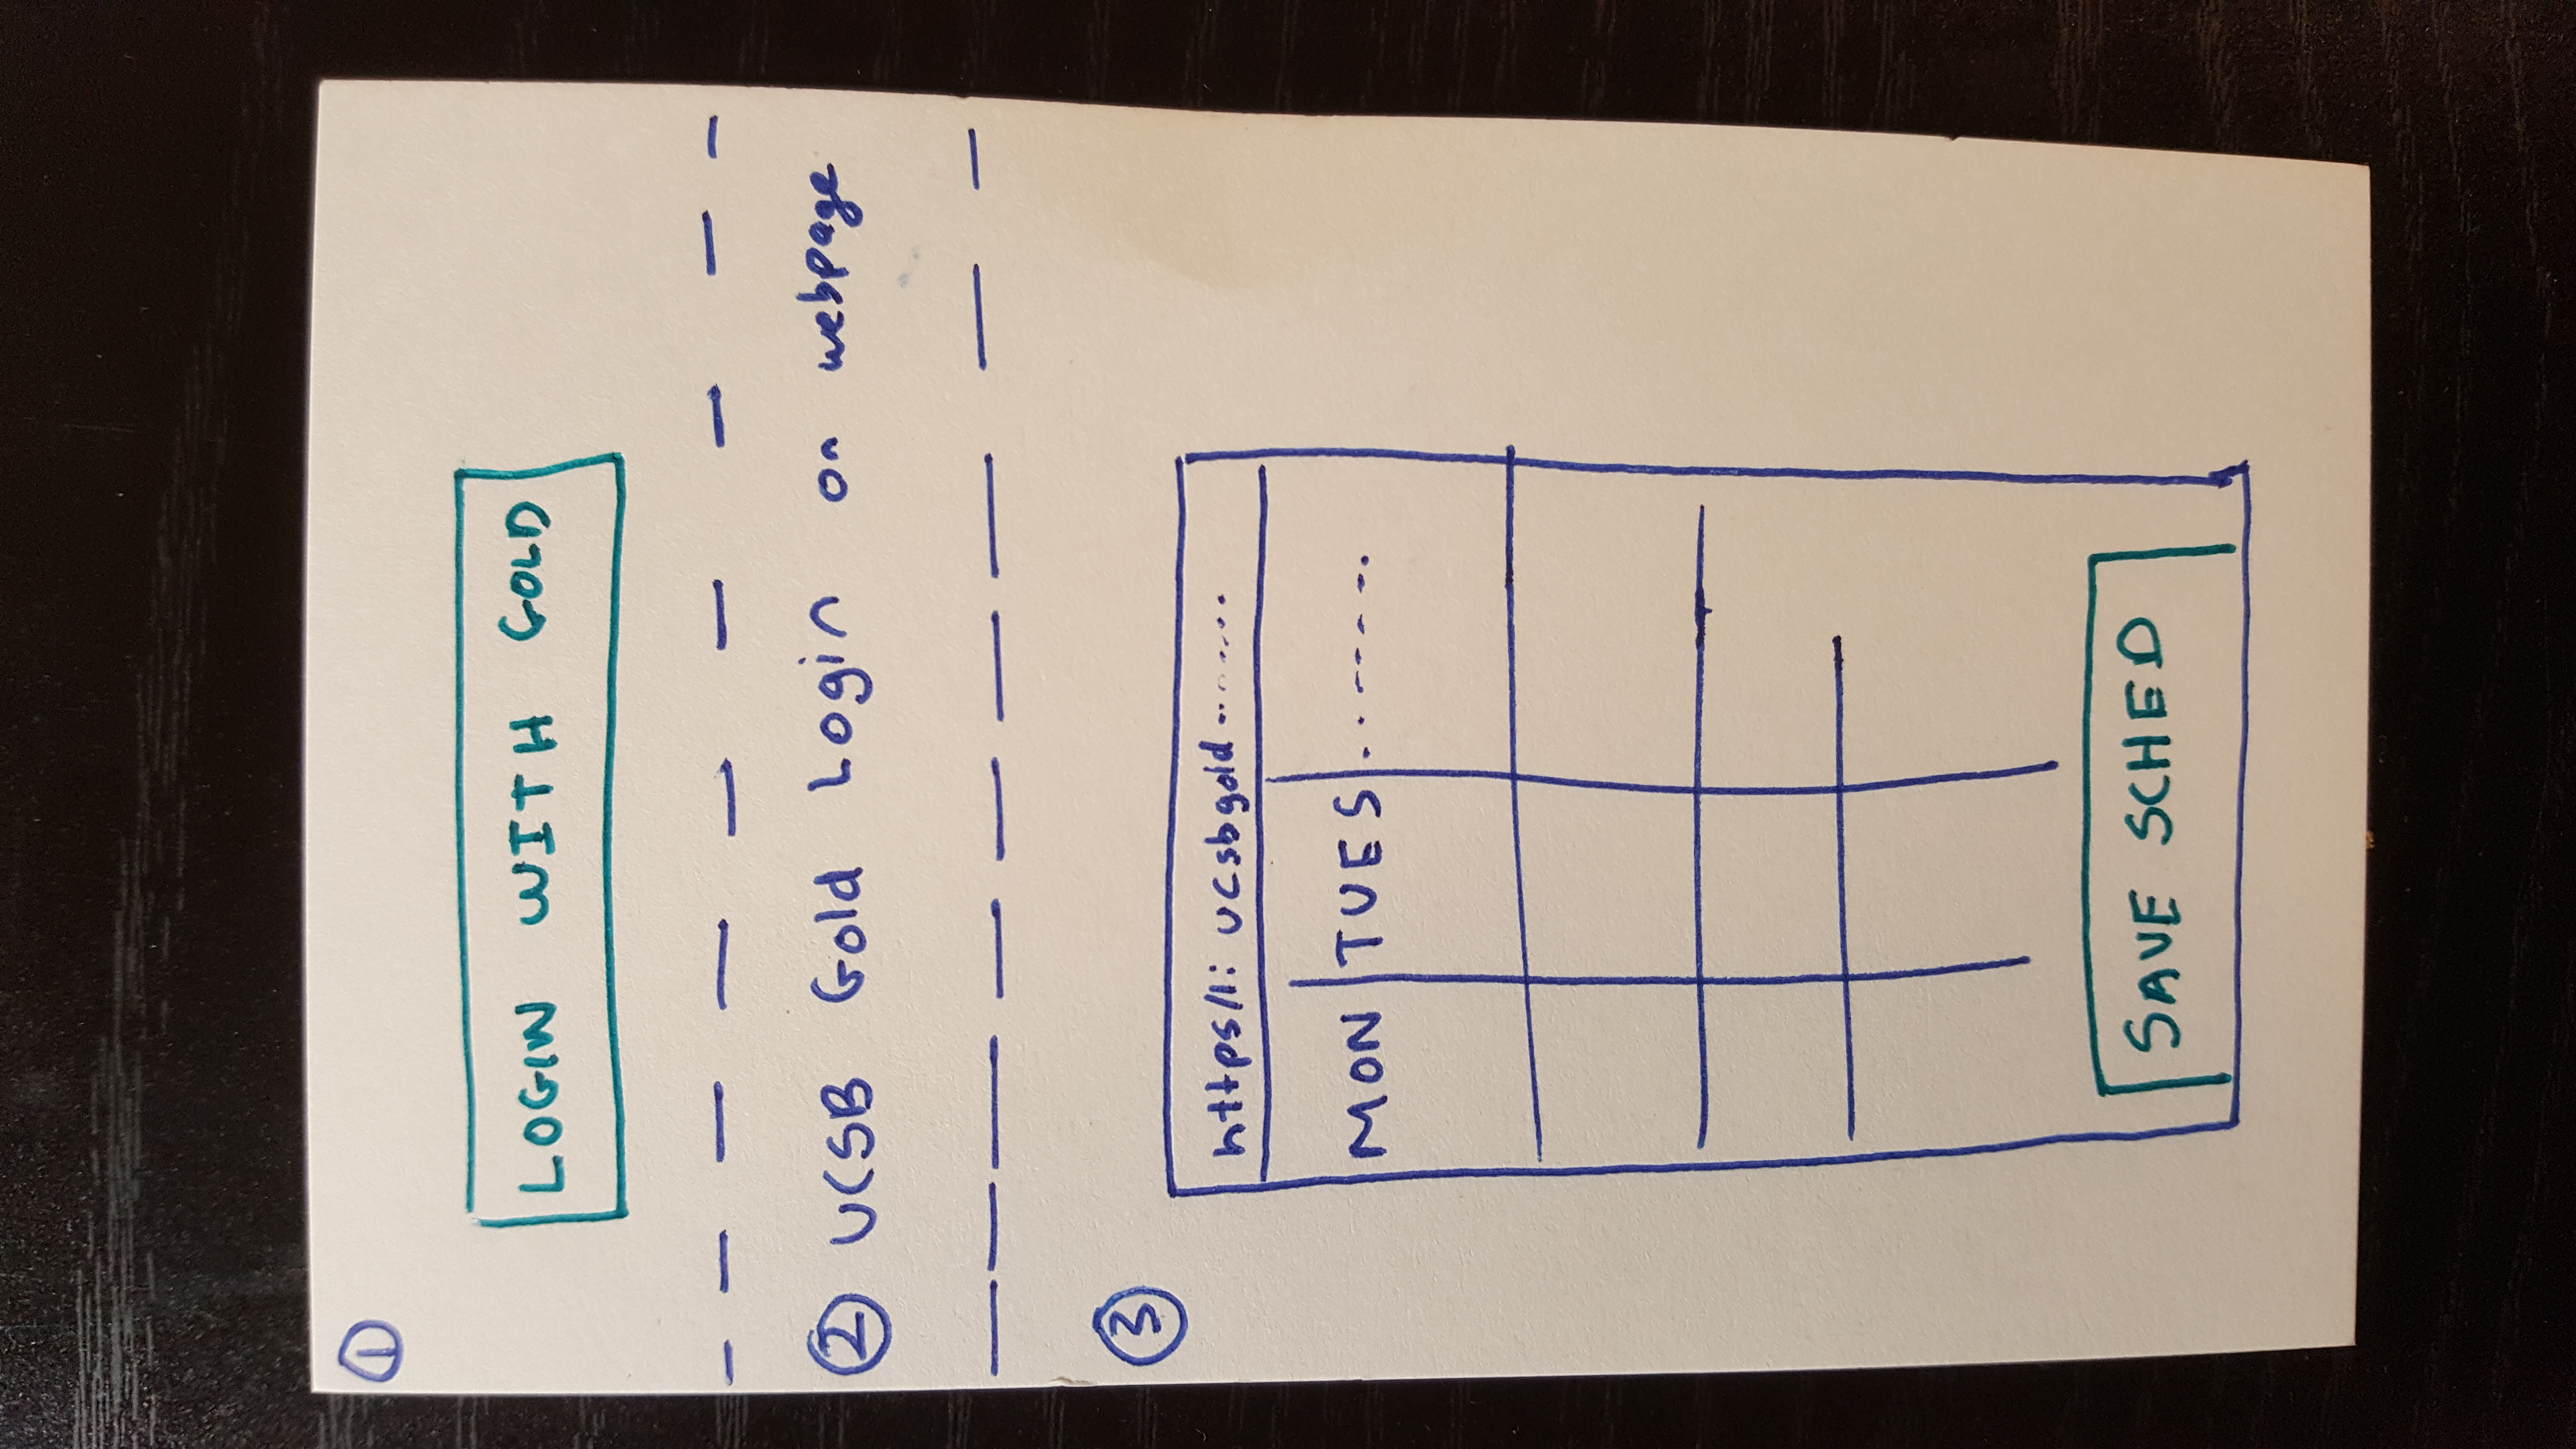 1
LOGIN WITH GOLD
2 UCSB Gold Login on webpage
3
https//: ucsbgold........
MON TUES ........
SAVE SCHED